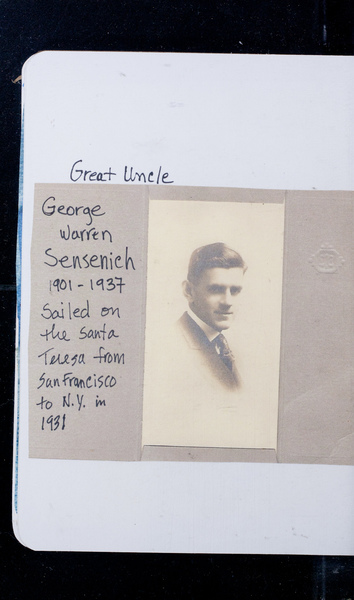 Great Uncle
George
Warren
Sensenich
1901-1937
Sailed on
the Santa
Teresa from
San Francisco
to N.Y. in
1931